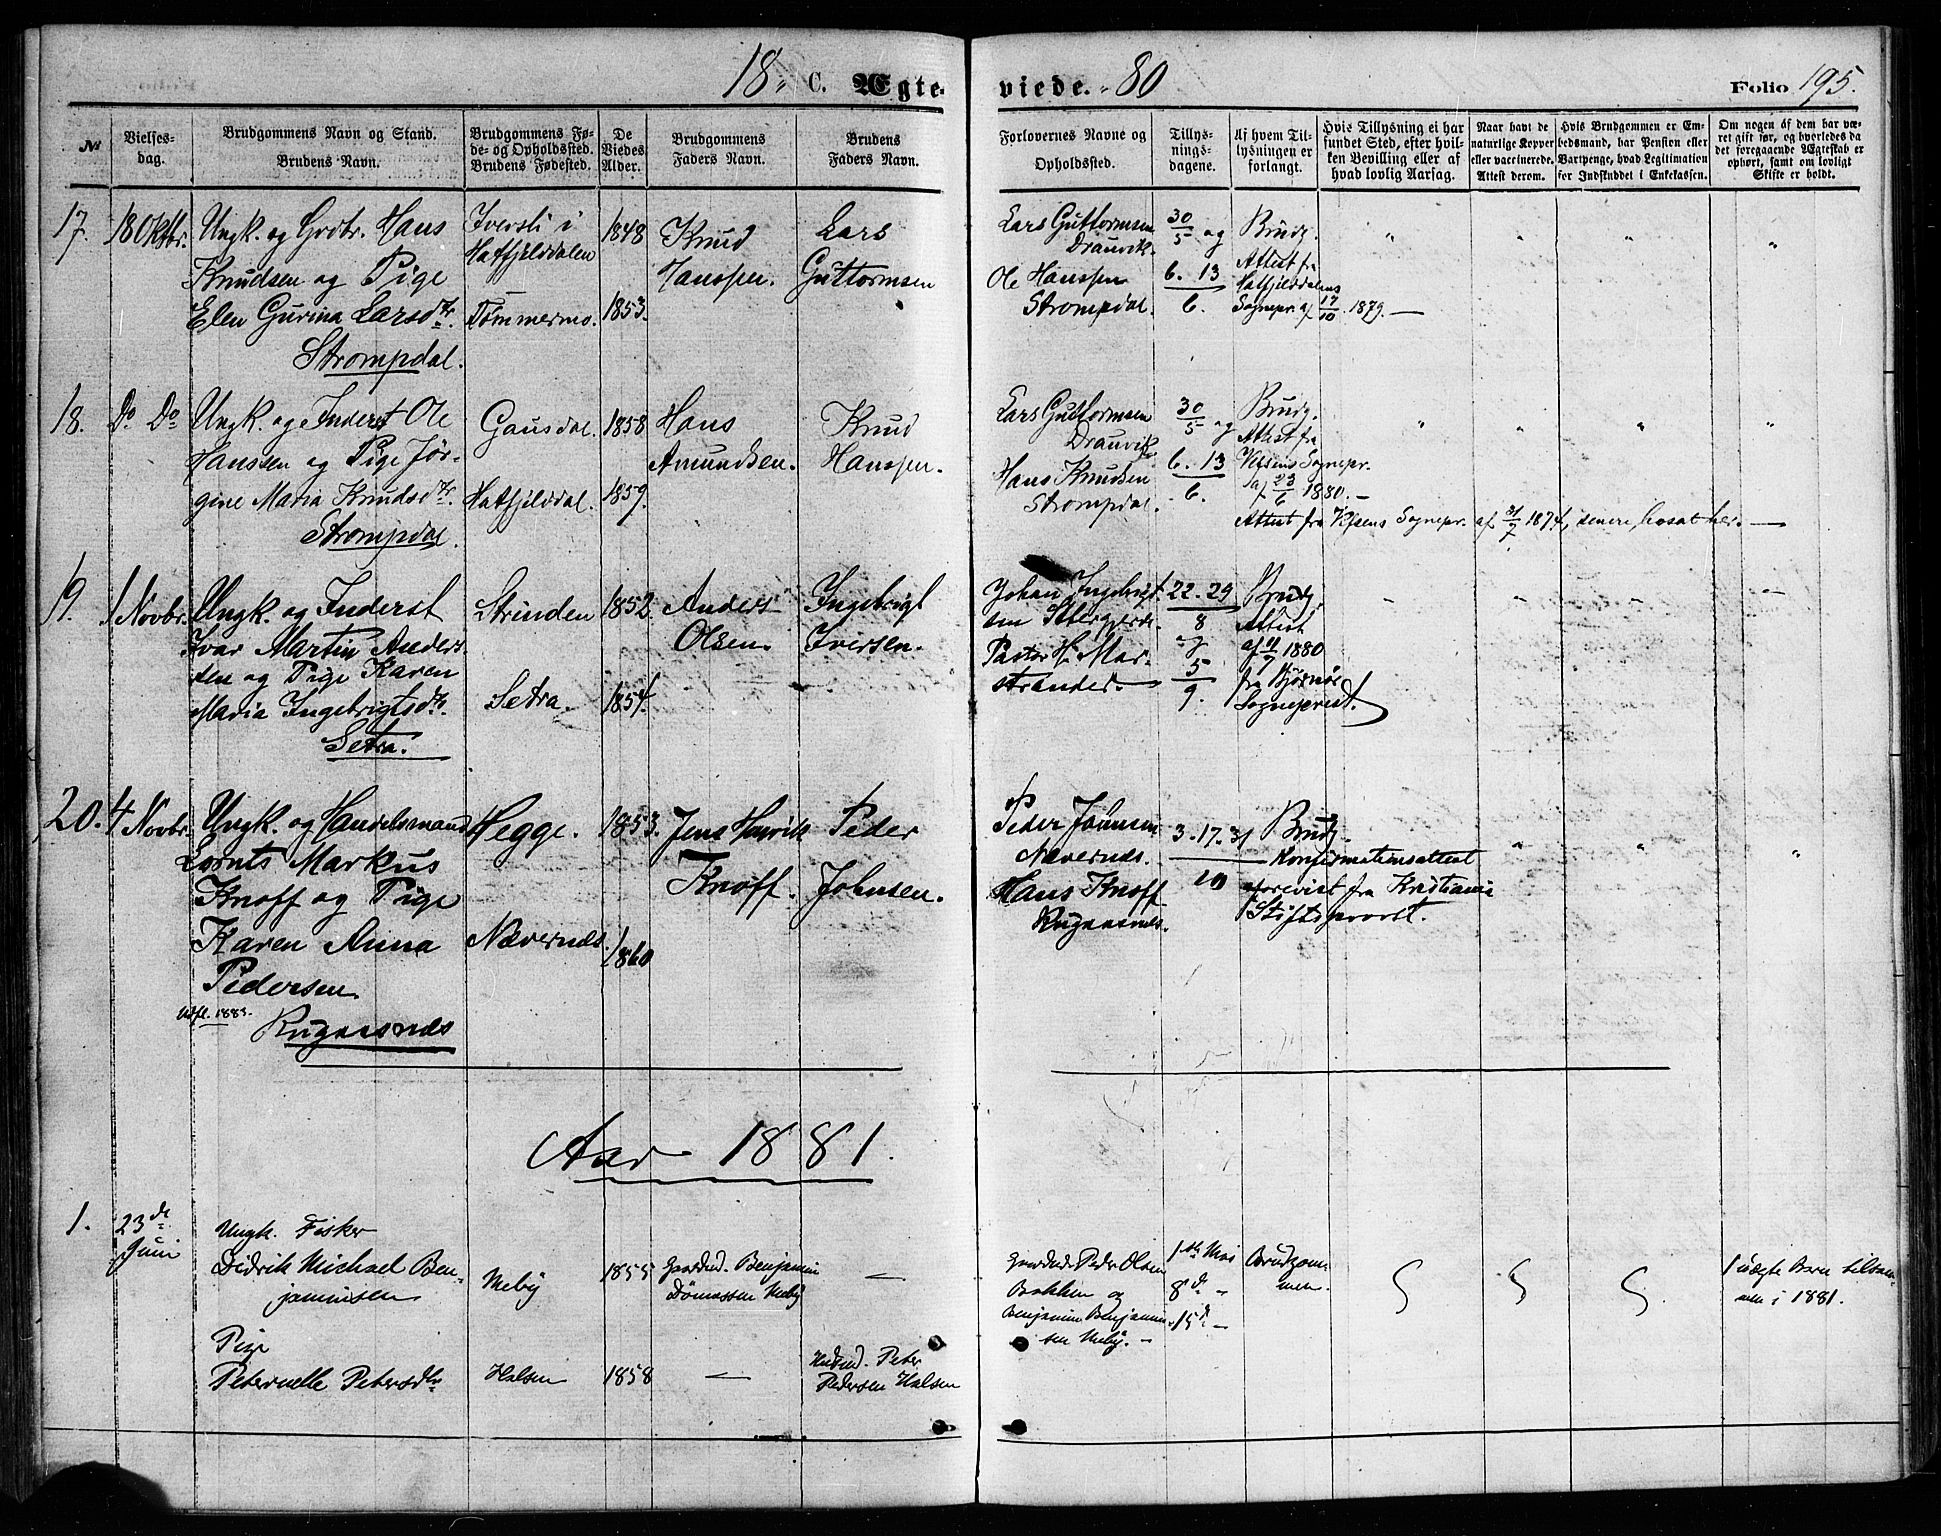 18 „ C. Ægte-
viede. „ 80
Folio 195.
№
Vielses-
dag.
Brudgommens Navn og Stand.
Brudens Navn.
Brudgommens Fø-
de- og Opholdssted.
Brudens Fødested.
De
Viedes
Alder.
Brudgommens
Faders Navn.
Brudens
Faders Navn.
Forlovernes Navne og
Opholdssted.
Tillys-
nings-
dagene.
Af hvem Til-
lysningen er
forlangt.
Hvis Tillysning ei har
fundet Sted, efter hvil-
ken Bevilling eller af
hvad lovlig Aarsag.
Naar havt de
naturlige Kopper
eller vaccinerede.
Attest derom.
Hvis Brudgommen er Em-
bedsmand, har Pension eller
Vartpenge, hvad Legitimation
for Indskuddet i Enkekassen.
Om nogen af dem har væ-
ret gift før, og hvorledes da
det foregaaende Ægteskab er
ophørt, samt om lovligt
Skifte er holdt.
17.
18 Oktbr.
Ungk. og Grdbr. Hans
Knudsen og Pige
Elen Gurina Larsdtr.
Strompdal.
Iversli i
Hatfjelddalen
Tømmermo.
1848
1853.
Knud
Hanssen.
Lars
Guttormsen
Lars Guttormsen
Drauvik.
Ole Hanssen
Strompdal.
30/5 og
6. 13
6.
Brudg.
Attest fra
Hatfjelddalens
Sognepr. af 17/10 1879. —
18.
Do Do
Ungk. og Inderst Ole
Hanssen og Pige Jør-
gine Maria Knudsdtr.
Strompdal.
Gausdal.
Hatfjelddal.
1858
1859.
Hans
Amundsen.
Knud
Hanssen.
Lars Guttormsen
Drauvik
Hans Knudsen
Strompdal.
30/5 og
6. 13
6.
Brudg.
Attest fra
Vefsens Sognepr.
af 23/6 1880. —
Attest fra Vefsens Sognepr. af 31/7 1874, senere bosat her. —
19.
1 Novbr.
Ungk. og Inderst
Ivar Martin Anders
sen og Pige Karen
Maria Ingebrigtsdtr.
Setra.
Strinden
Setra.
1852.
1854.
Anders
Olsen.
Ingebrigt
Iversen.
Johan Ingebrigt-
sen
Pastor H. Mar-
strander.
22. 29
8
og
5
9.
Brudg.
Attest
1880
fra Bjørnør
Sogneprest.
20.
4 Novbr.
Ungk. og Handelsmand
Lornts Markus
Knoff og Pige
Karen Anna
Pedersen.
Udfl. 1883.
Rugaasnæs
Hegge.
Nævernæs.
1853.
1860
Jens Henrik
Knoff.
Peder
Johnsen.
Peder Johnsen
Nævernæs.
Hans Knoff
Rugaasnæs.
3. 17. 31
10
Brudg.
Konfirmationsattest
forevist fra Kristiania
Stiftsprovst.
Aar 1881.
1.
23de
Juni
Ungk. Fisker
Didrik Michael Ben-
jaminsen
Pige
Peternelle Petersdtr
Meby
Halsen
1855
1858
Gaardmd. Benjamin
Meby
—
—
Husmd. Peter
Pedersen Halsen
Gaardmd. Peder Olsen
Bakken og
Benjamin Benjamin-
sen Meby. —
1ste Mai
8de „
15d —
Brudgom-
men
1 uægte Barn tilsam-
men i 1881.